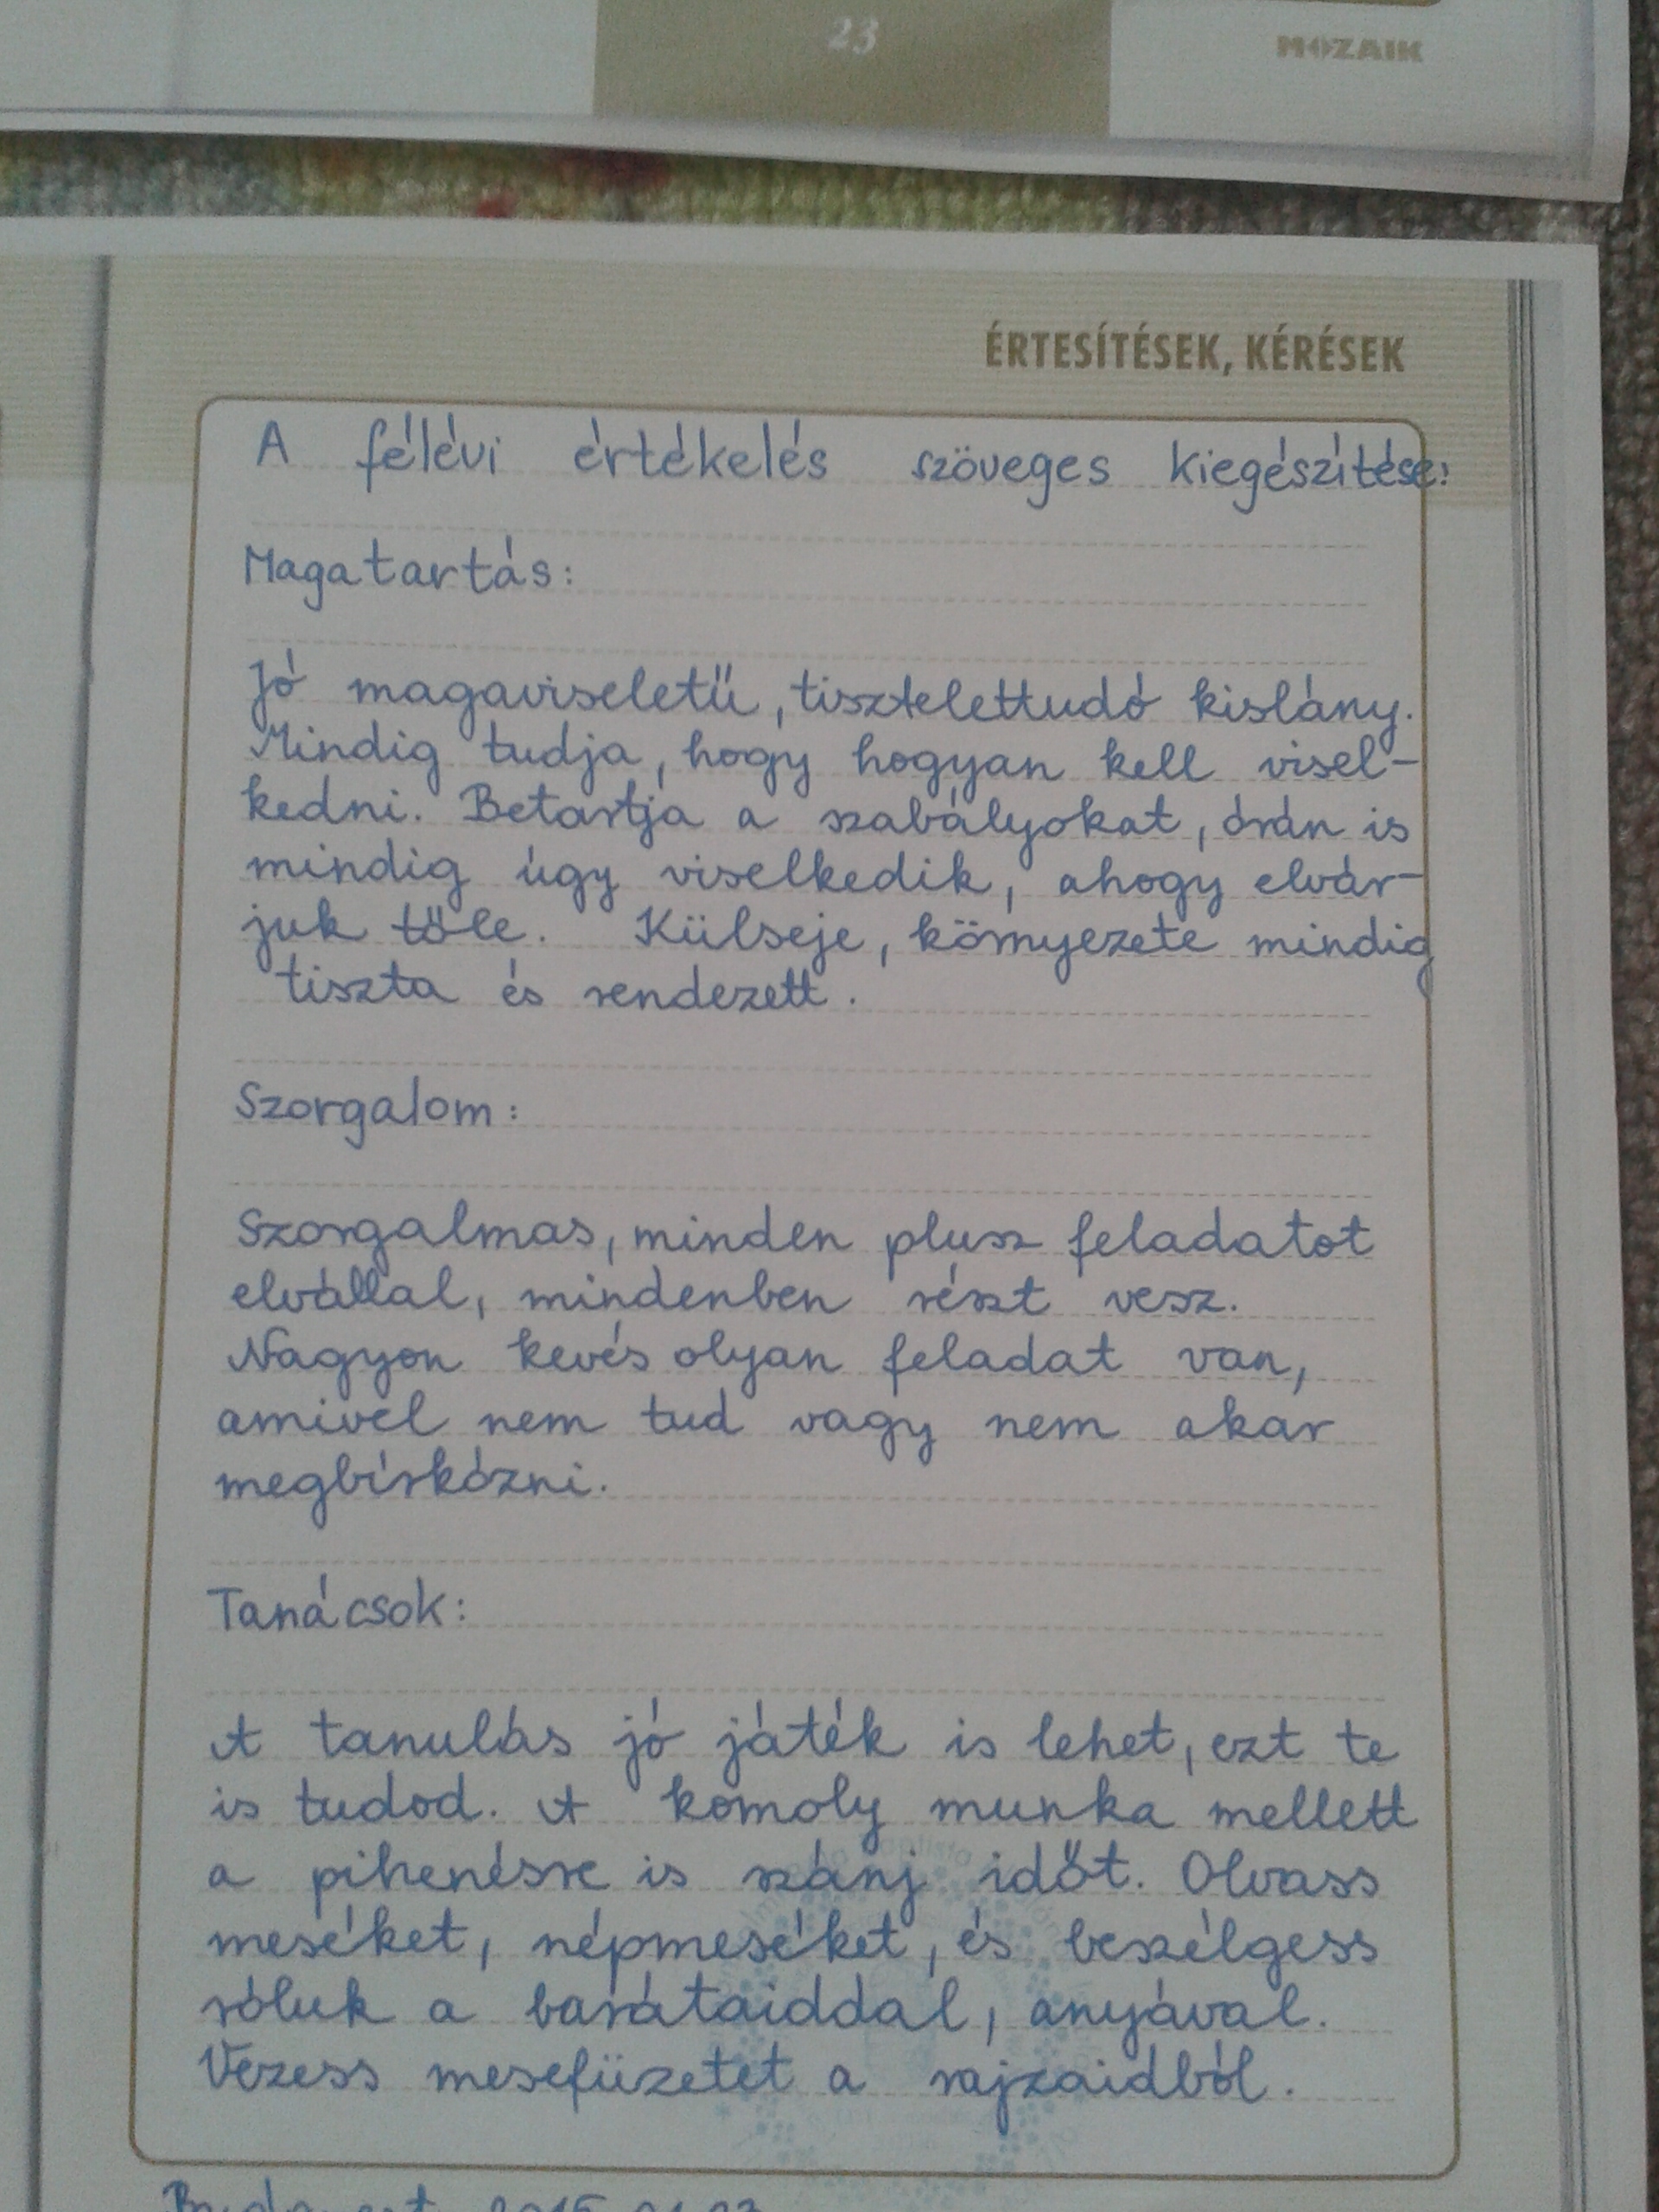 23
MOZAIK
ÉRTESÍTÉSEK, KÉRÉSEK
A félévi értékelés szöveges kiegészítése:
Magatartás:
Jó magaviseletű, tisztelettudó kislány.
Mindig tudja, hogy hogyan kell visel-
kedni. Betartja a szabályokat, órán is
mindig úgy viselkedik, ahogy elvár-
juk tőle. Külseje, környezete mindig
tiszta és rendezett.
Szorgalom:
Szorgalmas, minden plusz feladatot
elvállal, mindenben részt vesz.
Nagyon kevés olyan feladat van,
amivel nem tud vagy nem akar
megbírkózni.
Tanácsok:
A tanulás jó játék is lehet, ezt te
is tudod. A komoly munka mellett
a pihenésre is szánj időt. Olvass
meséket, népmeséket, és beszélgess
róluk a barátaiddal, anyával.
Vezess mesefüzetet a rajzaidból.
Budapest